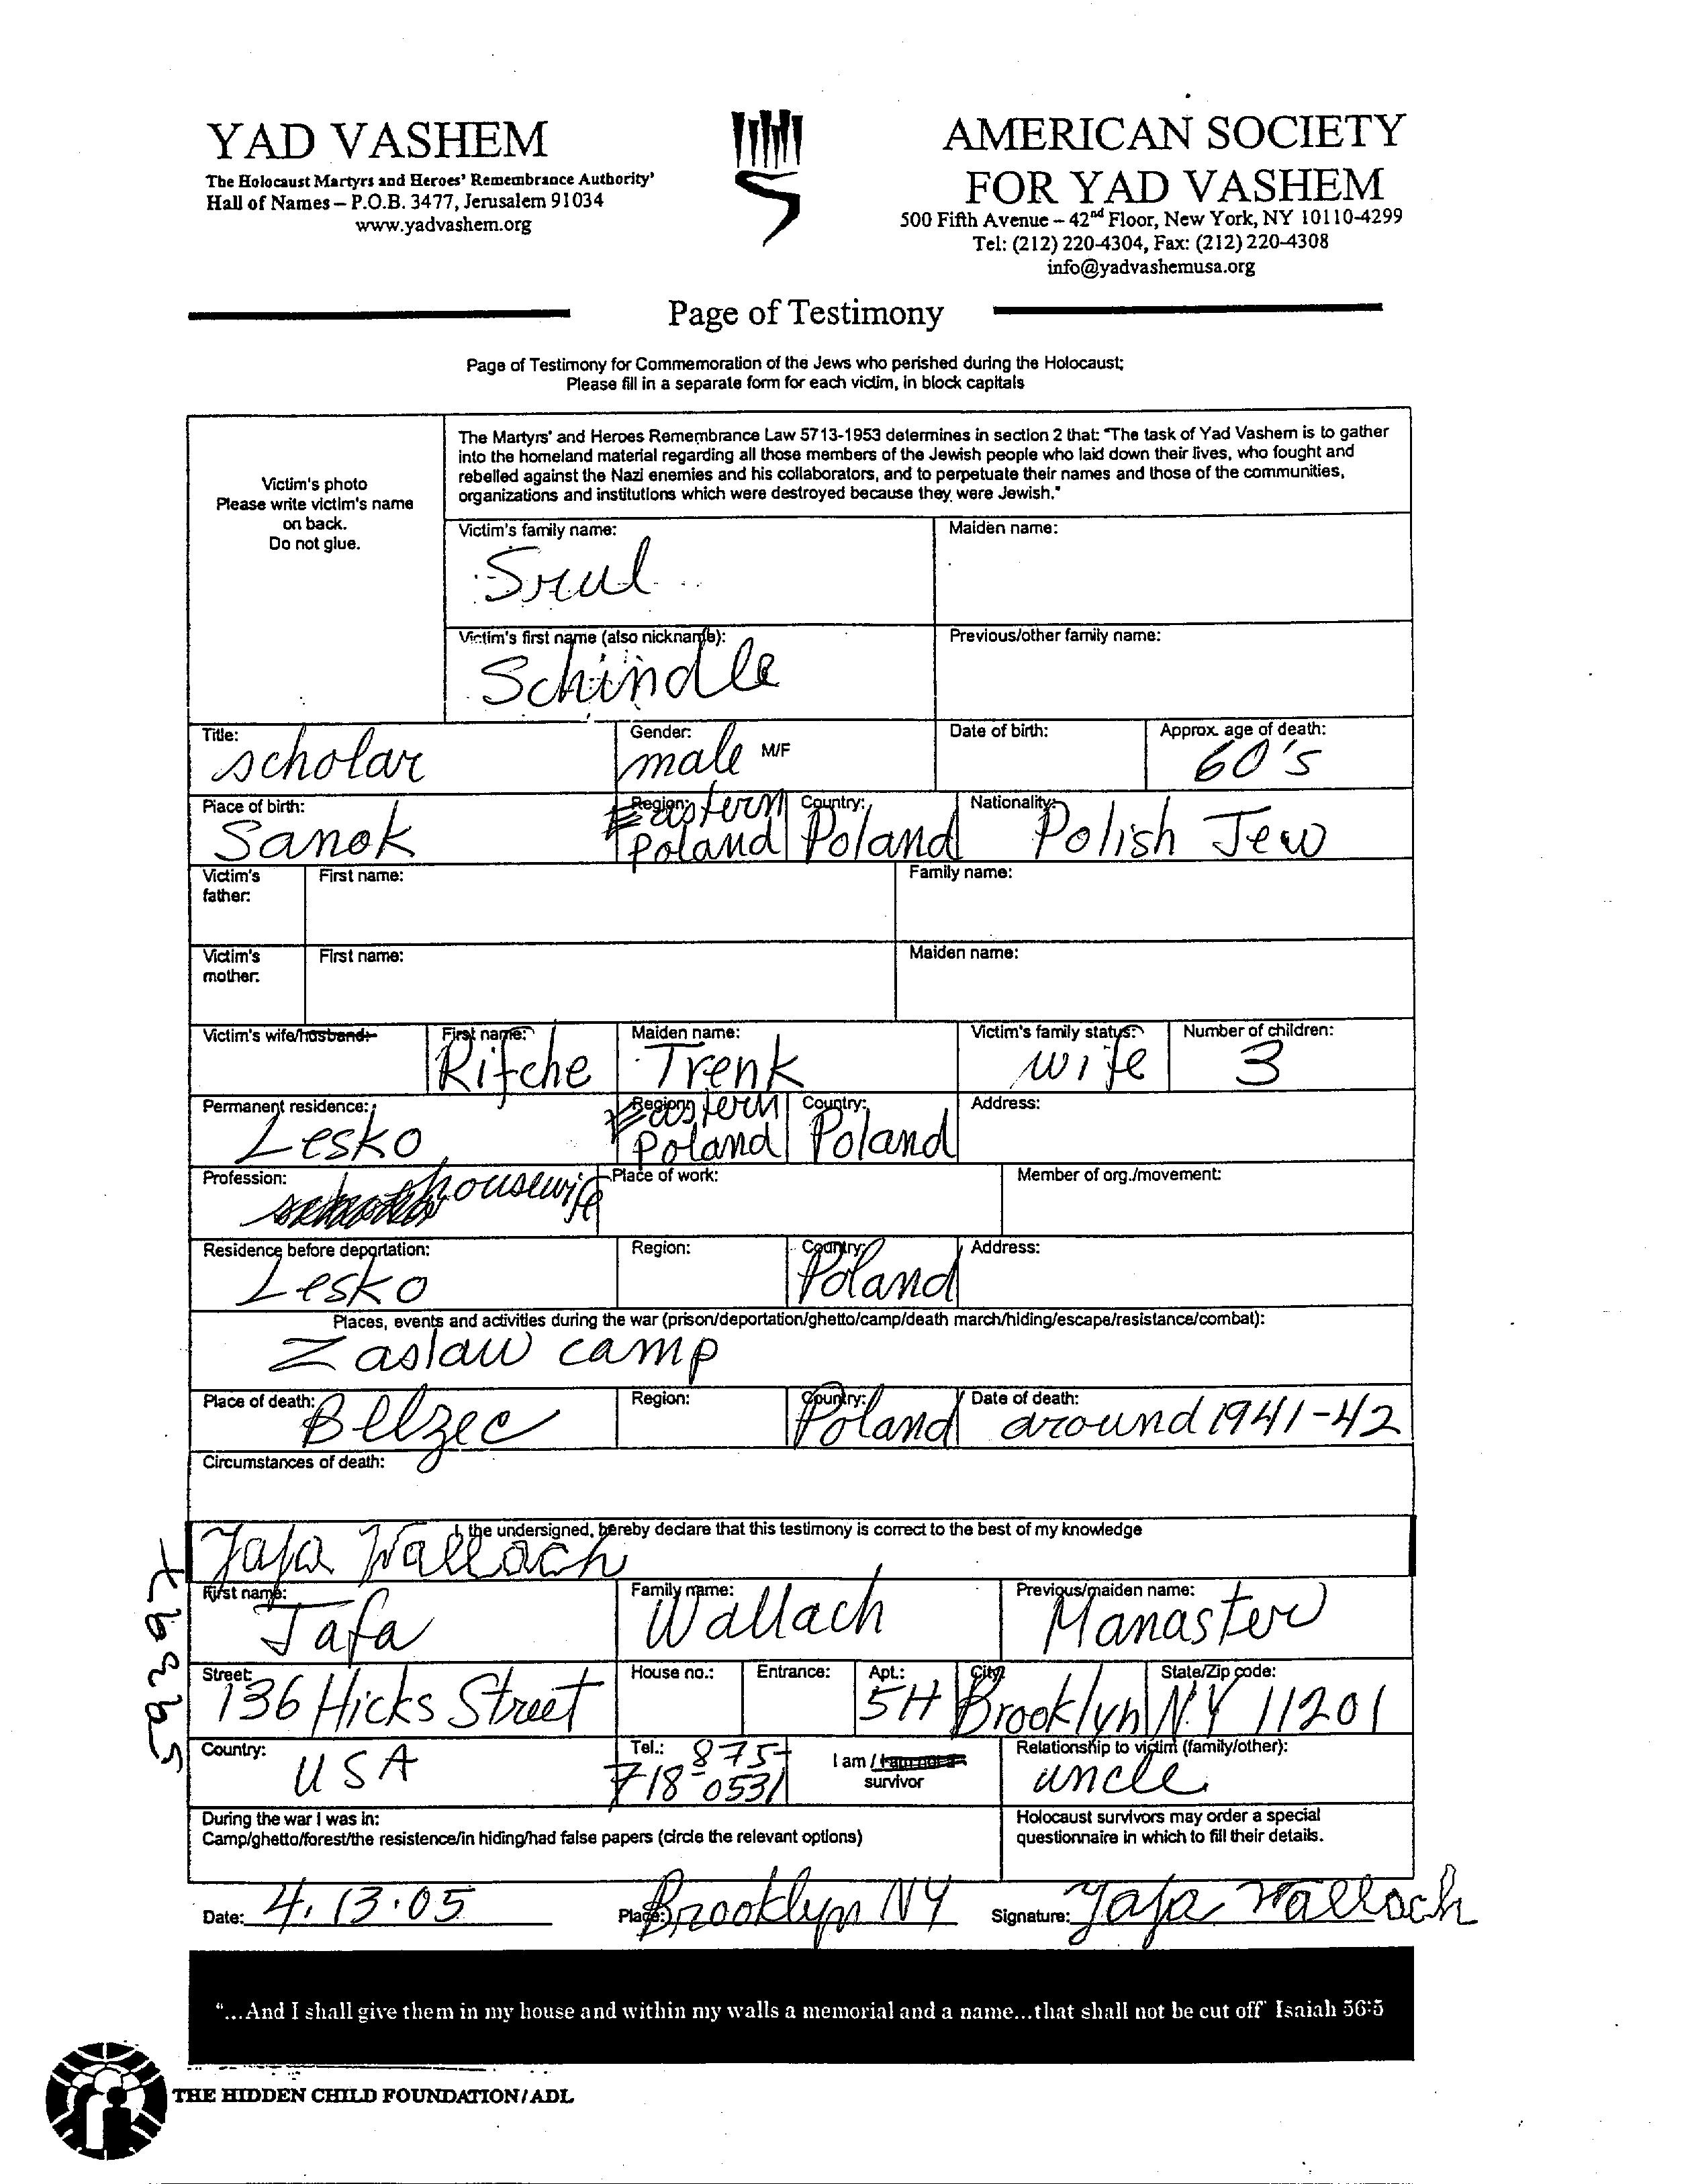 YAD VASHEM
The Holocaust Martyrs and Heroes' Remembrance Authority'
Hall of Names – P.O.B. 3477, Jerusalem 91034
www.yadvashem.org
AMERICAN SOCIETY
FOR YAD VASHEM
500 Fifth Avenue – 42nd Floor, New York, NY 10110-4299
Tel: (212) 220-4304, Fax: (212) 220-4308
info@yadvashemusa.org
Page of Testimony
Page of Testimony for Commemoration of the Jews who perished during the Holocaust;
Please fill in a separate form for each victim, in block capitals
Victim's photo
Please write victim's name
on back.
Do not glue.
The Martyrs' and Heroes Remembrance Law 5713-1953 determines in section 2 that: "The task of Yad Vashem is to gather
into the homeland material regarding all those members of the Jewish people who laid down their lives, who fought and
rebelled against the Nazi enemies and his collaborators, and to perpetuate their names and those of the communities,
organizations and institutions which were destroyed because they were Jewish."
Victim's family name: Maiden name:
Srul
Victim's first name (also nickname): Previous/other family name:
Schindle
Title: Gender: Date of birth: Approx. age of death:
scholar male M/F 60's
Place of birth: Region: Country: Nationality:
Sanok Eastern Poland Poland Polish Jew
Victim's father: First name: Family name:
Victim's mother: First name: Maiden name:
Victim's wife/husband: First name: Maiden name: Victim's family status: Number of children:
Rifche Trenk wife 3
Permanent residence: Region: Country: Address:
Lesko Eastern Poland Poland
Profession: Place of work: Member of org./movement:
housewife
Residence before deportation: Region: Country: Address:
Lesko Poland
Places, events and activities during the war (prison/deportation/ghetto/camp/death march/hiding/escape/resistance/combat):
Zaslaw camp
Place of death: Region: Country: Date of death:
Belzec Poland around 1941-42
Circumstances of death:
I, the undersigned, hereby declare that this testimony is correct to the best of my knowledge
Jafa Wallach
First name: Family name: Previous/maiden name:
Jafa Wallach Manaster
Street: House no.: Entrance: Apt.: City: State/Zip code:
136 Hicks Street 5H Brooklyn N.Y 11201
Country: Tel.: I am / I am not a survivor Relationship to victim (family/other):
USA 718-875-0531 uncle
During the war I was in:
Camp/ghetto/forest/the resistence/in hiding/had false papers (circle the relevant options)
Holocaust survivors may order a special
questionnaire in which to fill their details.
Date: 4.13.05 Place: Brooklyn NY Signature: Jafa Wallach
"...And I shall give them in my house and within my walls a memorial and a name...that shall not be cut off" Isaiah 56:5
THE HIDDEN CHILD FOUNDATION/ADL